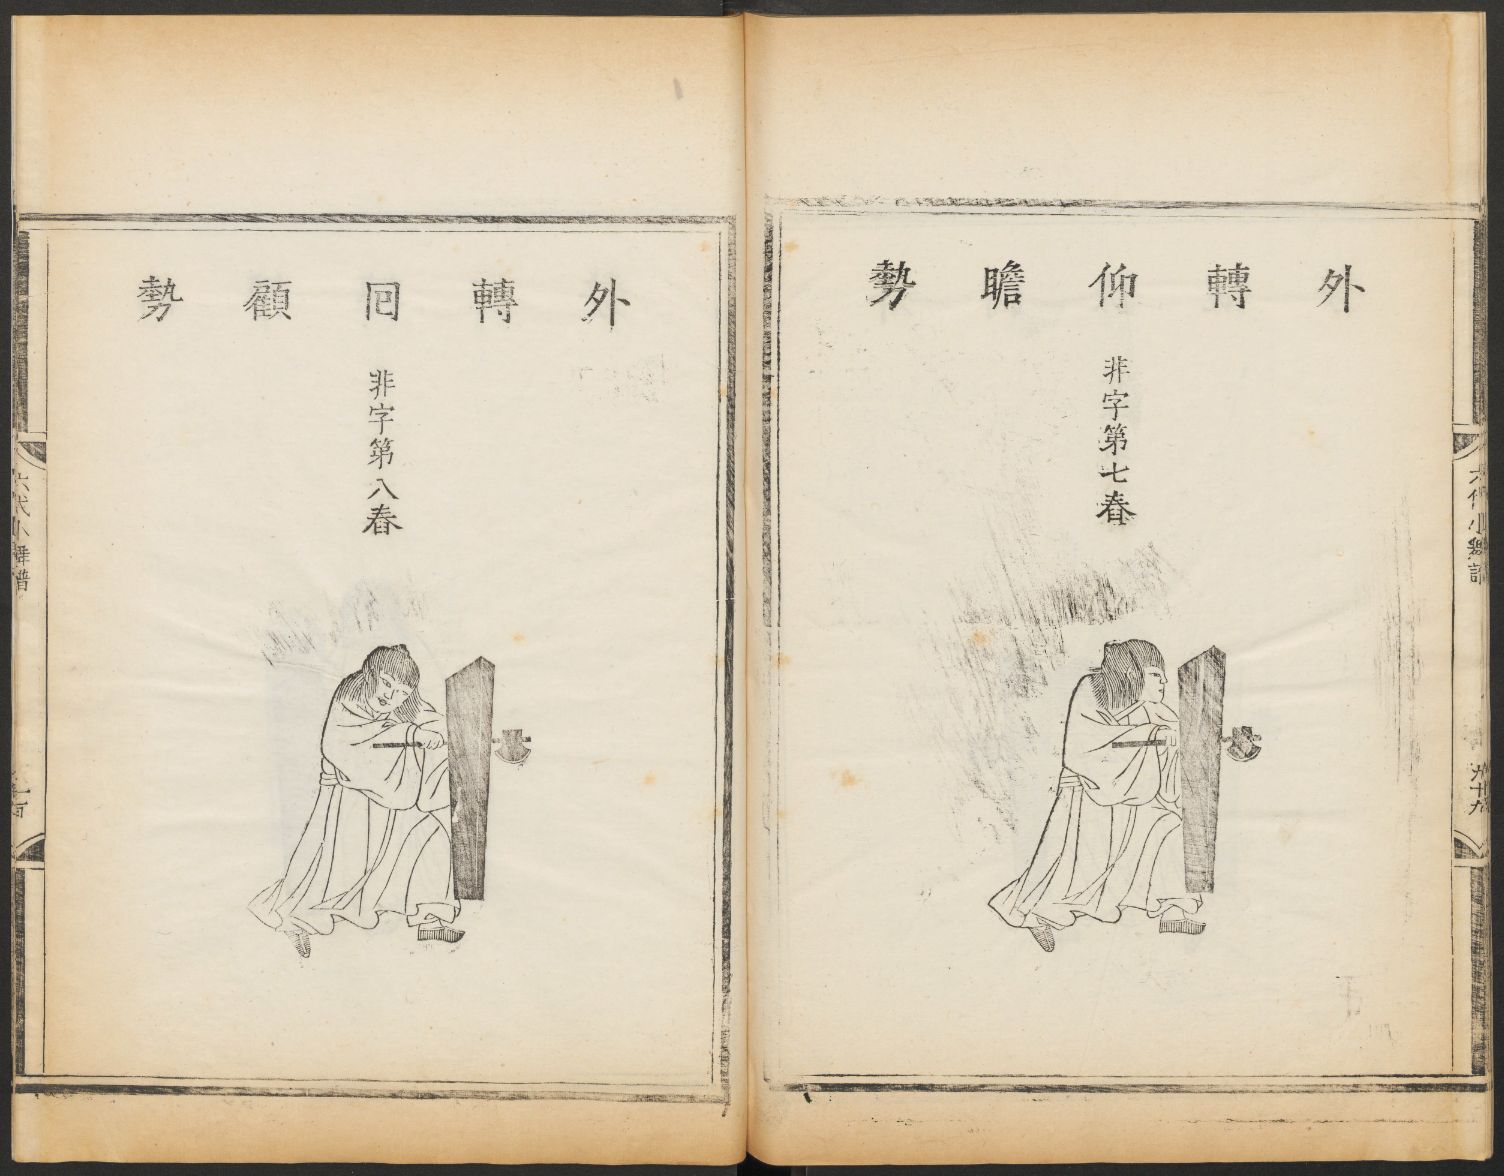 外轉仰瞻勢
非字第七舂
六代小舞譜
九十九
外轉囘顧勢
非字第八舂
六代小舞譜
一百